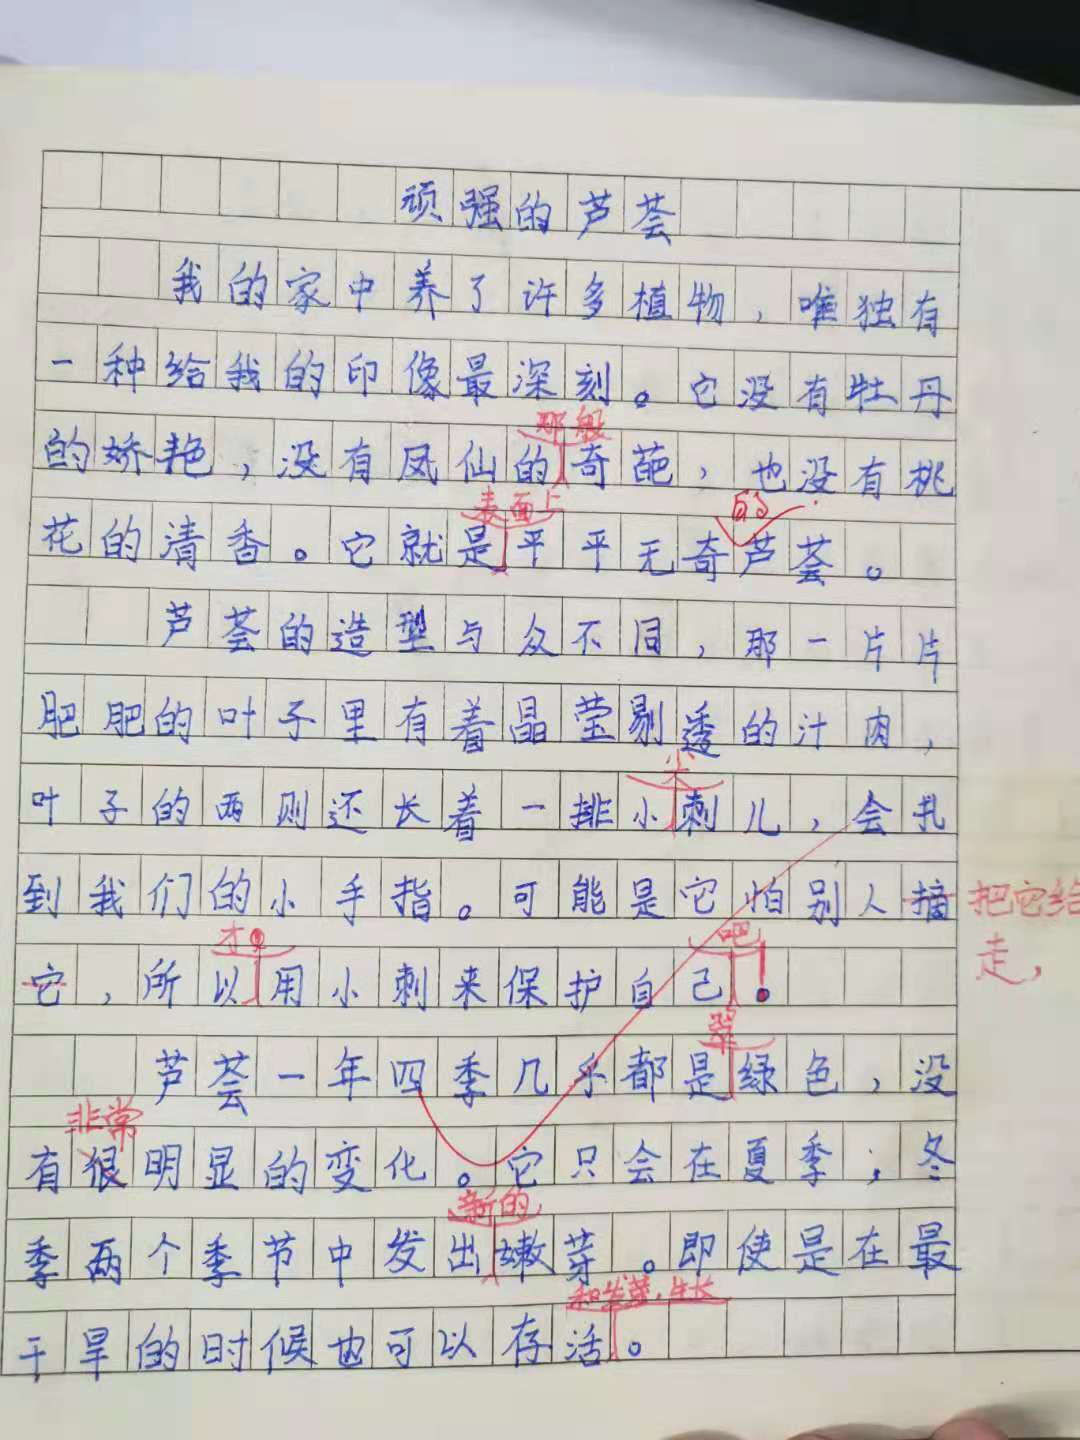 顽强的芦荟
我的家中养了许多植物，唯独有
一种给我的印像最深刻。它没有牡丹
那般
的娇艳，没有凤仙的奇葩，也没有桃
表面上
的
花的清香。它就是平平无奇芦荟。
芦荟的造型与众不同，那一片片
肥肥的叶子里有着晶莹剔透的汁肉，
尖
叶子的两则还长着一排小刺儿，会扎
到我们的小手指。可能是它怕别人摘把它给
走，
才
吧！
它，所以用小刺来保护自己。
翠
芦荟一年四季几乎都是绿色，没
非常
有很明显的变化。它只会在夏季，冬
新的
季两个季节中发出嫩芽。即使是在最
和发芽、生长
干旱的时候也可以存活。